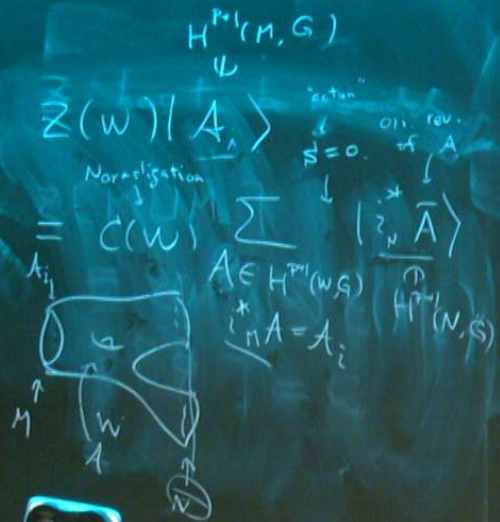 H^{p+1}(M, G)
Ψ
Z(W) | A_i ⟩
"action"
S = 0.
ori. rev. of A
Normalization
= C(W) Σ | i_N^* Ā ⟩
A ∈ H^{p+1}(W, G)
i_M^* A = A_i
H^{p+1}(N, G)
A_i
M
W
A
N